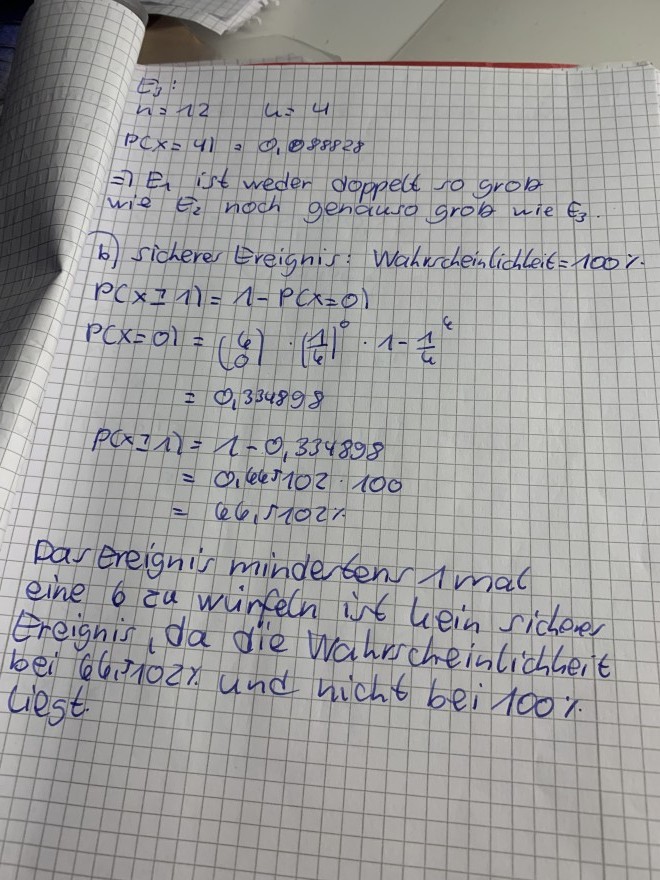 E₃:
n = 12 k = 4
P(X = 4) = 0,088828
=> E₁ ist weder doppelt so groß
wie E₂ noch genauso groß wie E₃.
b) sicheres Ereignis: Wahrscheinlichkeit = 100 %
P(X ≥ 1) = 1 - P(X = 0)
P(X = 0) = (6 0) · (1/6)⁰ · 1 - 1/6 ⁶
= 0,334898
P(X ≥ 1) = 1 - 0,334898
= 0,665102 · 100
= 66,5102 %
Das Ereignis mindestens 1 mal
eine 6 zu würfeln ist kein sicheres
Ereignis, da die Wahrscheinlichkeit
bei 66,5102 % und nicht bei 100 %
liegt.